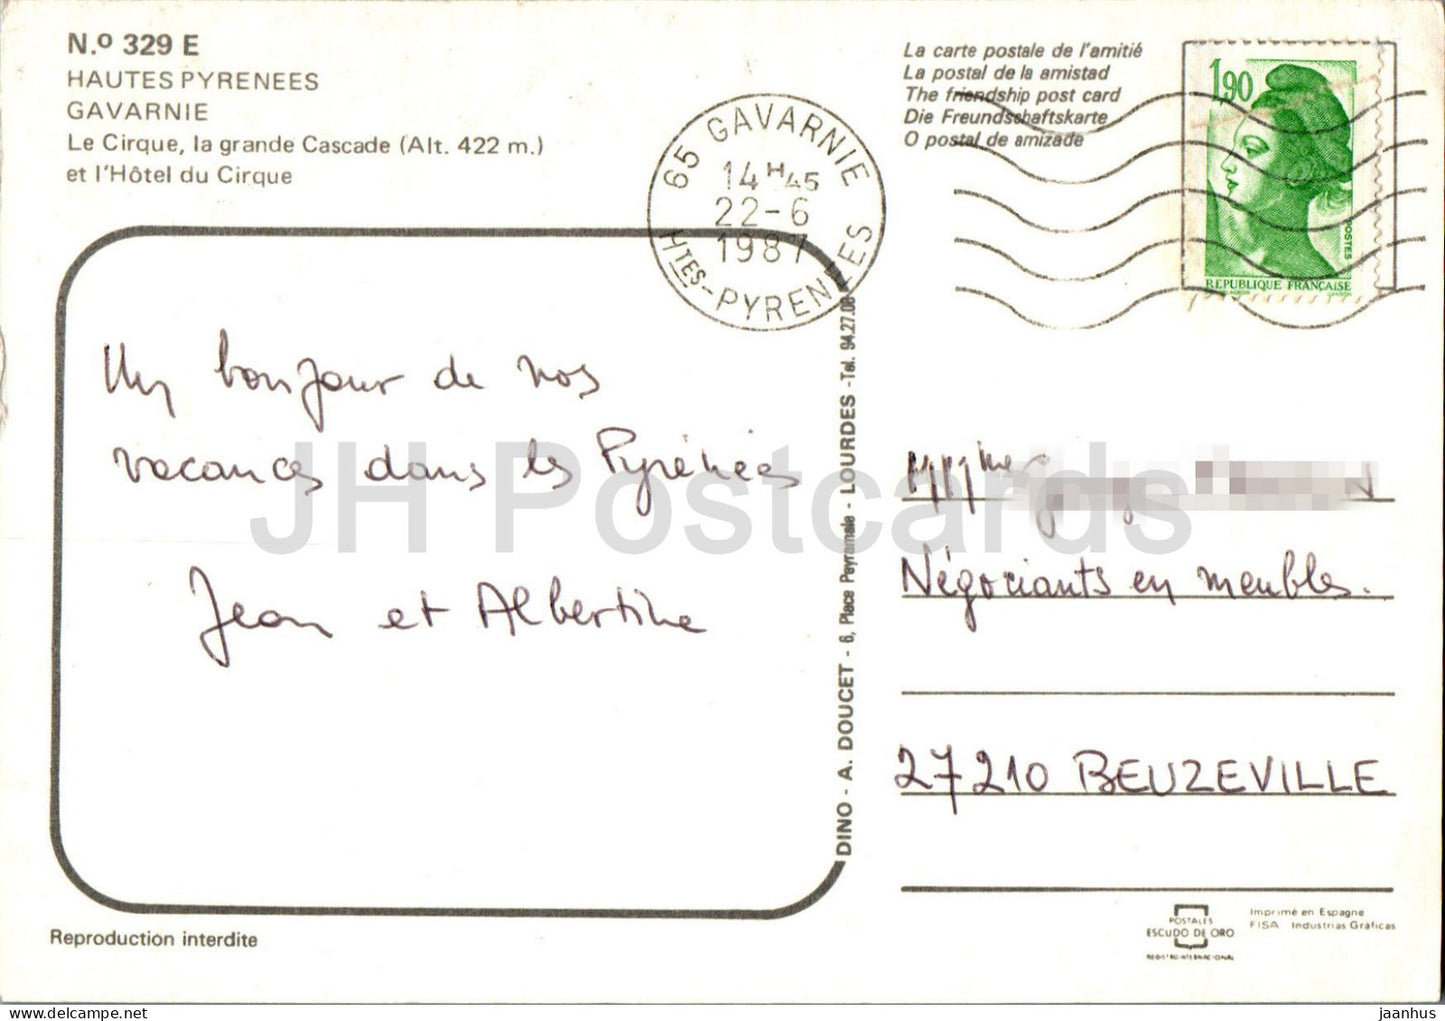 N.º 329 E
HAUTES PYRENEES
GAVARNIE
Le Cirque, la grande Cascade (Alt. 422 m.)
et l'Hôtel du Cirque
65 GAVARNIE
14 H 45
22-6
1987
HTES-PYRENEES
La carte postale de l'amitié
La postal de la amistad
The friendship post card
Die Freundschaftskarte
O postal de amizade
1,90
POSTES
REPUBLIQUE FRANÇAISE
Un bonjour de nos
vacances dans les Pyrénées
Jean et Albertine
DINO - A. DOUCET - 6, Place Peyramale - LOURDES - Tel. 94.27.08
Négociants en meubles.
27210 BEUZEVILLE
Reproduction interdite
POSTALES
ESCUDO DE ORO
REGISTRO INTERNACIONAL
Imprimé en Espagne
FISA Industrias Gráficas
JH Postcards
delcampe.net
jaanhus